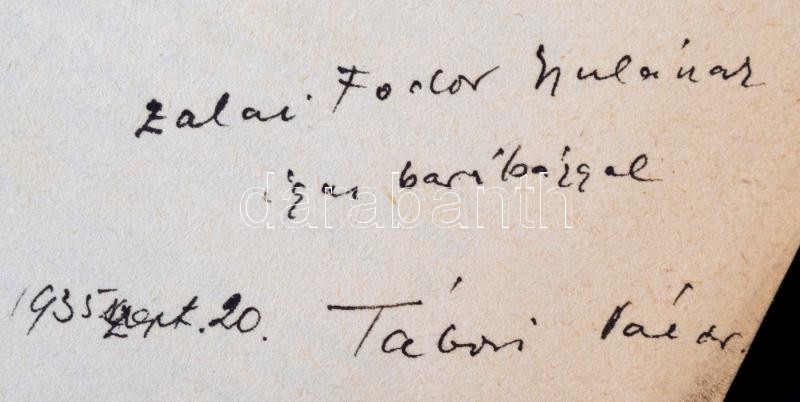 Zalai Fodor Gyulának
igaz barátsággal
1935 szept. 20. Tábori
darabanth